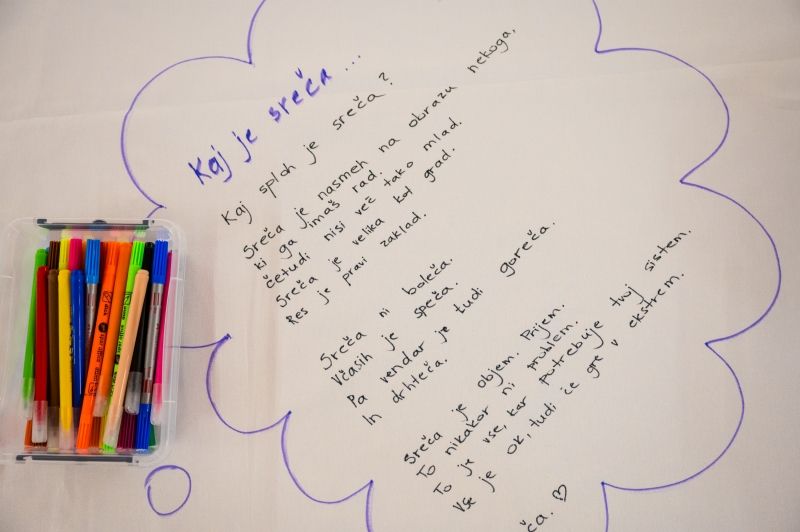 Kaj je sreča...
Kaj sploh je sreča?
Sreča je nasmeh na obrazu nekoga,
ki ga imaš rad.
četudi nisi več tako mlad.
Sreča je velika kot grad.
Res je pravi zaklad.
Sreča ni boleča.
Včasih je speča.
Pa vendar je tudi goreča.
In drhteča.
Sreča je objem. Prijem.
To nikakor ni problem.
To je vse, kar potrebuje tvoj sistem.
Vse je ok, tudi če gre v ekstrem.